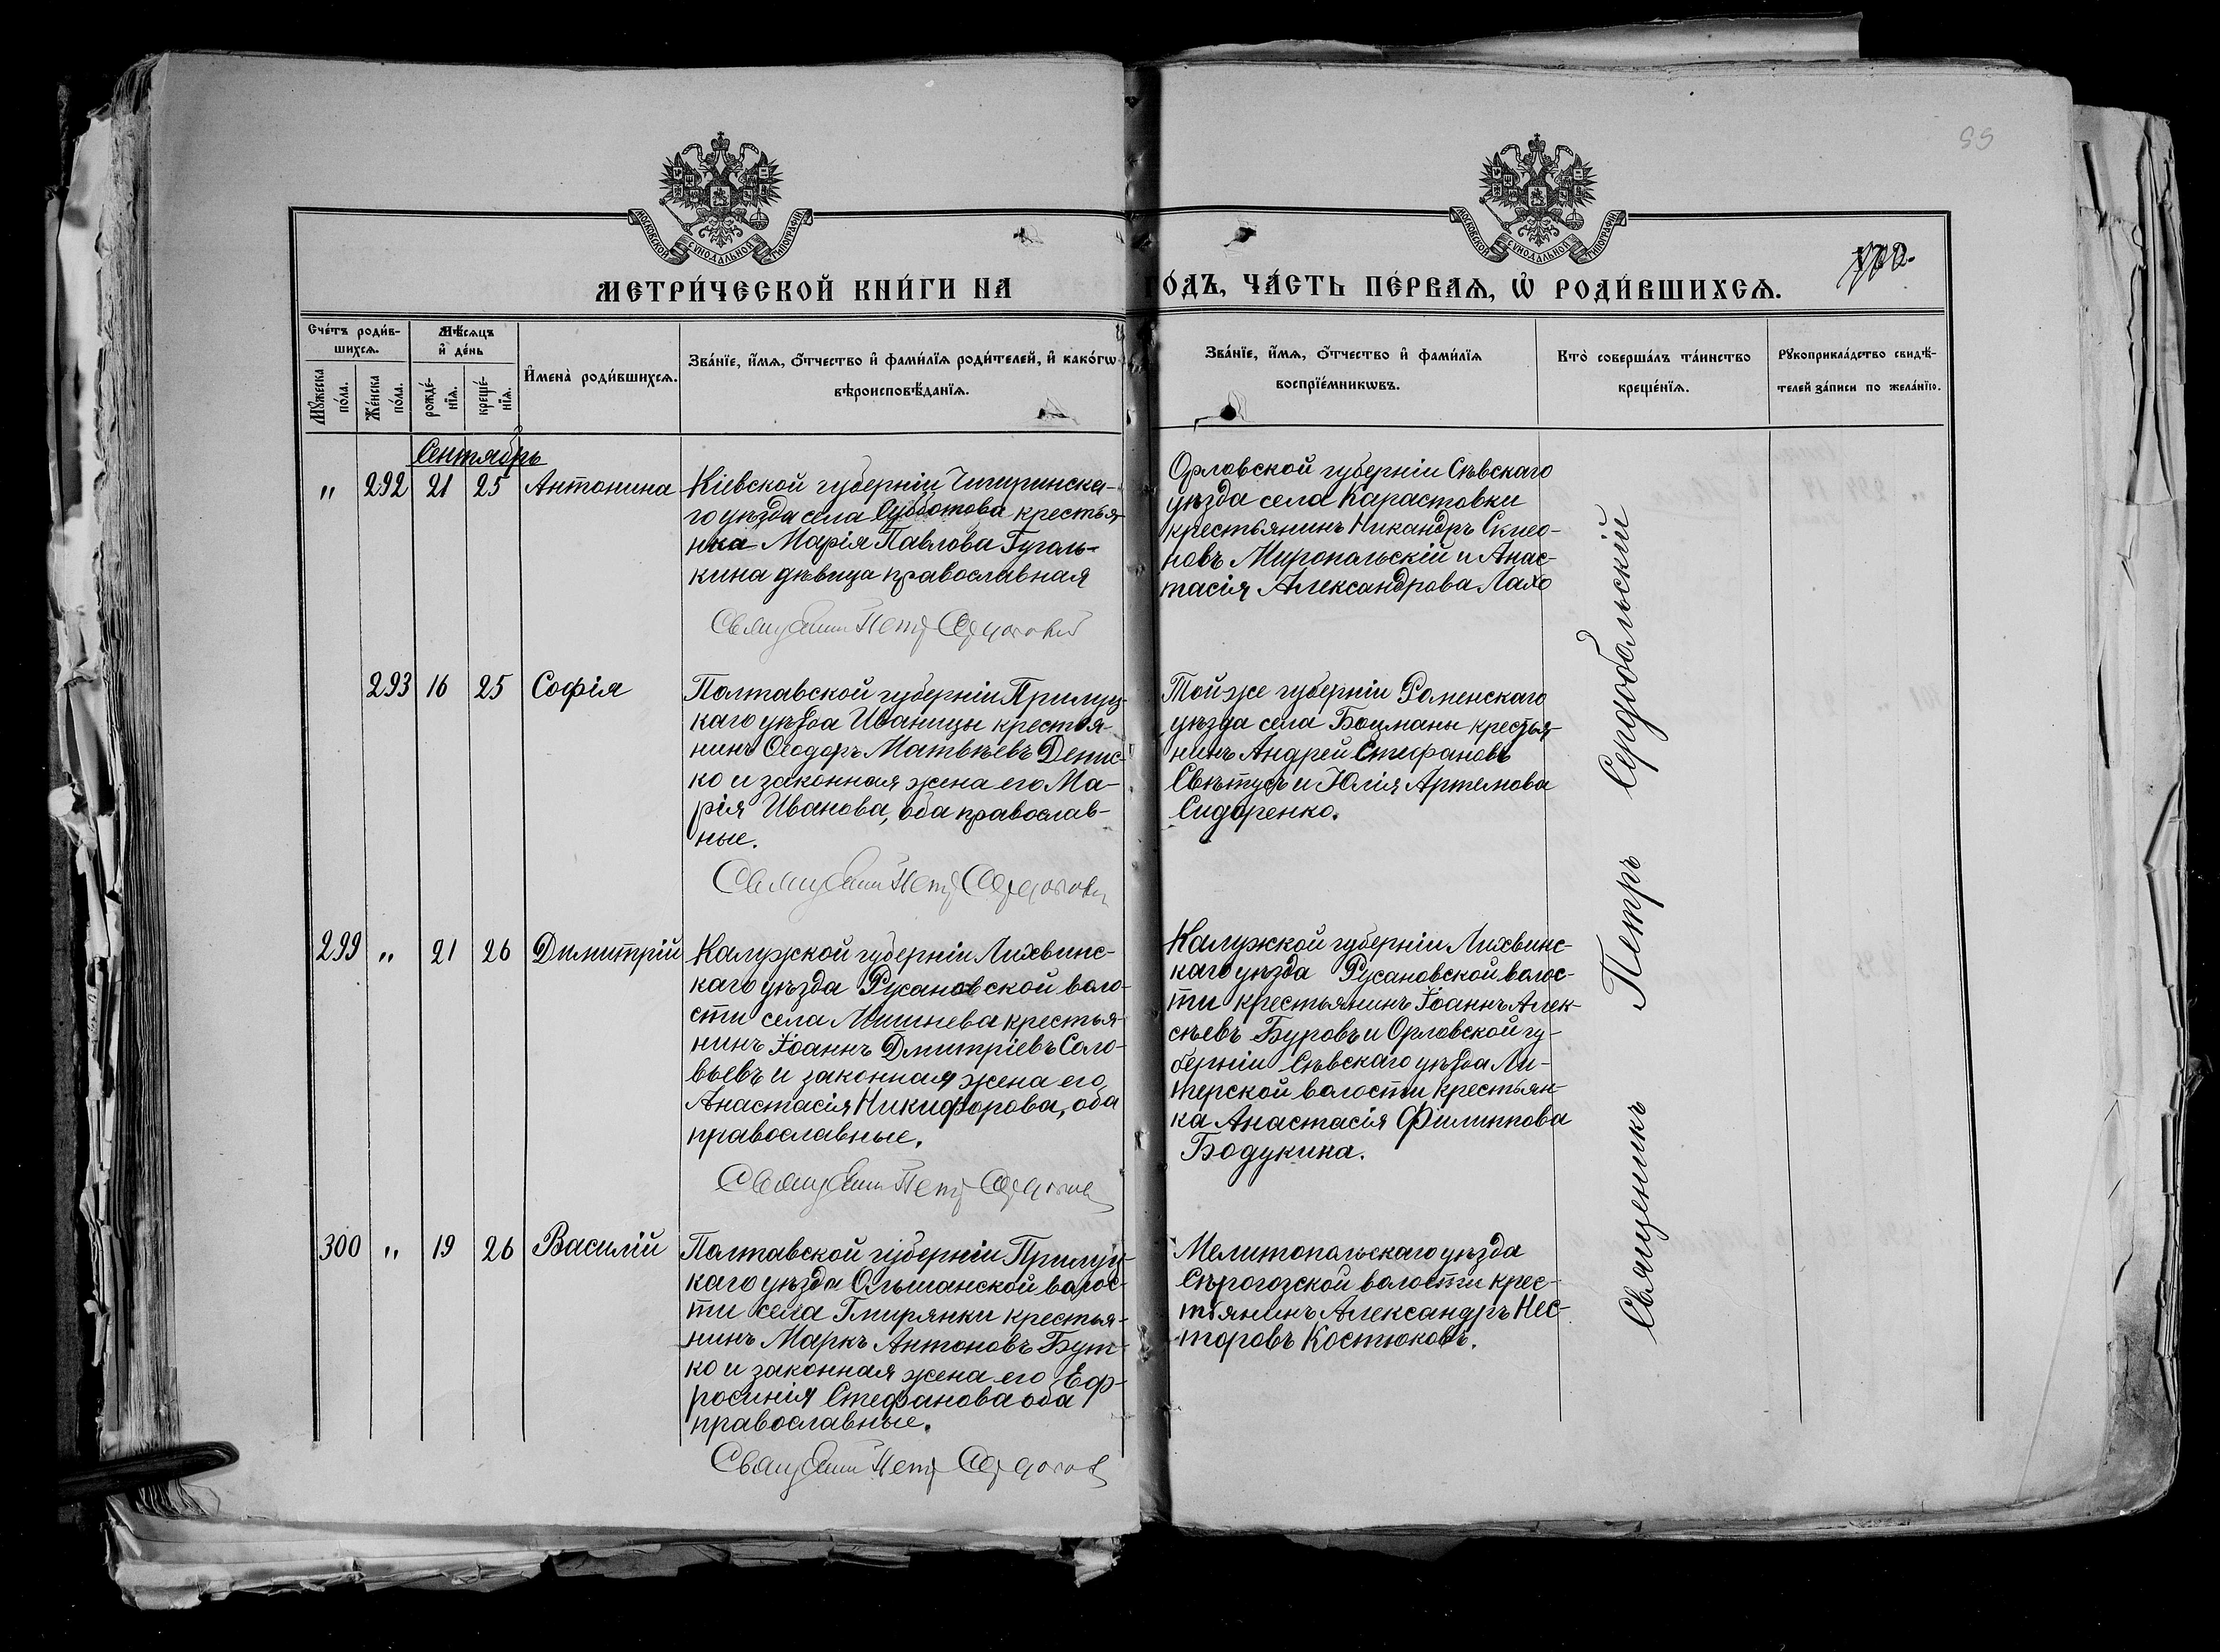 99
МОСКОВСКОЙ СѴНОДАЛЬНОЙ ТИПОГРАФІИ
МОСКОВСКОЙ СѴНОДАЛЬНОЙ ТИПОГРАФІИ
МЕТРИ́ЧЕСКОЙ КНИ́ГИ НА ГО́ДЪ, ЧА́СТЬ ПЕ́РВАѦ, Ѽ РОДИ́ВШИХСѦ.
Сче́тъ роди́в-
шихсѧ.
Мꙋ́жеска по́ла.
Же́нска по́ла.
Мѣ́сѧцъ и҆ де́нь
рожде́-нїѧ.
креще́-нїѧ.
И҆мена̀ роди́вшихсѧ.
Зва́нїе, и҆́мѧ, ѻ҆́тчество и҆ фами́лїѧ роди́телей, и҆ како́гѡ
вѣроисповѣ́данїѧ.
Зва́нїе, и҆́мѧ, ѻ҆́тчество и҆ фами́лїѧ
воспрїе́мникѡвъ.
Кто̀ соверша́лъ та́инство
креще́нїѧ.
Рꙋкоприкла́дство свидѣ́-
телей за́писи по жела́нїю.
Сентябрь
" 292 21 25 Антонина
Кіевской губерніи Чигиринска-
го уѣзда села Субботова крестья-
нка Марія Павлова Гуголь-
кина дѣвица православная
Священникъ Петръ Сердобольскій
Орловской губерніи Сѣвскаго
уѣзда села Карастовки
крестьянинъ Никандръ
новъ Миропольскій и Анас-
тасія Александрова Лахо
293 16 25 Софія
Полтавской губерніи Прилуц-
каго уѣзда Иваницы крестья-
нинъ Ѳеодоръ Матвѣевъ Денис-
ко и законная жена его Ма-
рія Иванова, оба православ-
ные.
Священникъ Петръ Сердобольскій
Той же губерніи Роменскаго
уѣзда села Боцманы крестья-
нинъ Андрей Стефановъ
и Юлія Артемова
Сидоренко.
299 " 21 26 Димитрій
Калужской губерніи Лихвинс-
каго уѣзда Русановской воло-
сти села Мишнева крестья-
нинъ Іоаннъ Дмитріевъ Соло-
вьевъ и законная жена его
Анастасія Никифорова, оба
православные.
Священникъ Петръ Сердобольскій
Калужской губерніи Лихвинс-
каго уѣзда Русановской волос-
ти крестьянинъ Іоаннъ Алек-
сѣевъ Буровъ и Орловской гу-
берніи Сѣвскаго уѣзда Ли-
терской волости крестьян-
ка Анастасія Филиппова
Бодукина.
300 " 19 26 Василій
Полтавской губерніи Прилуц-
каго уѣзда Ольшанской волос-
ти села Гмирянки крестья-
нинъ Маркъ Антоновъ Бут-
ко и законная жена его Еф-
росинія Стефанова оба
православные.
Священникъ Петръ Сердобольскій
Мелитопольскаго уѣзда
Сѣрогозской волости крес-
тьянинъ Александръ Нес-
торовъ Костюковъ.
Священникъ Петръ Сердобольскій